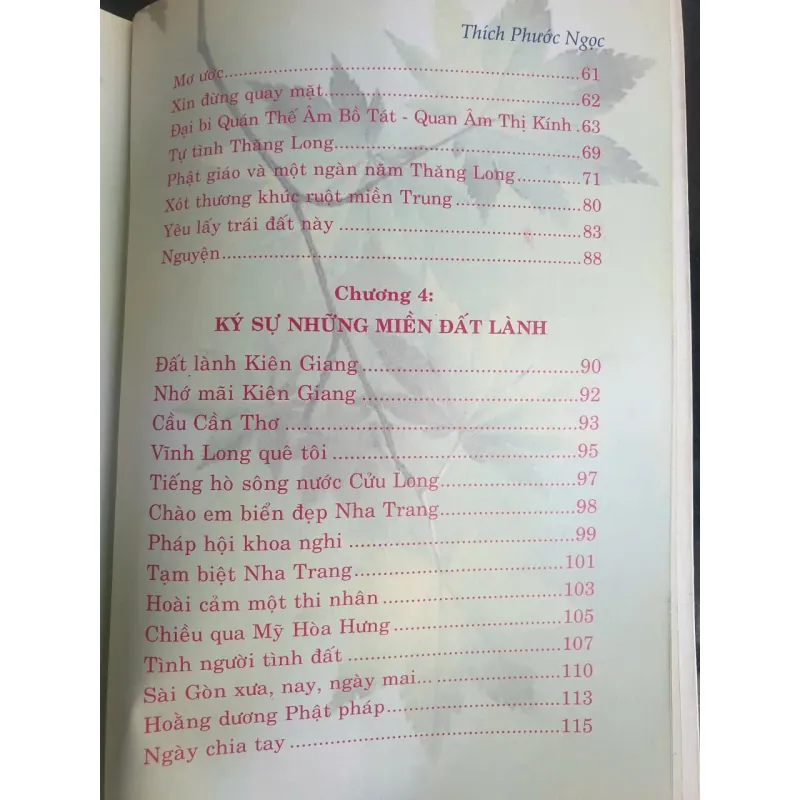 Thích Phước Ngọc
Mơ ước.....61
Xin đừng quay mặt.....62
Đại bi Quán Thế Âm Bồ Tát - Quan Âm Thị Kính .63
Tự tình Thăng Long.....69
Phật giáo và một ngàn năm Thăng Long.....71
Xót thương khúc ruột miền Trung.....80
Yêu lấy trái đất này.....83
Nguyện.....88
Chương 4:
KÝ SỰ NHỮNG MIỀN ĐẤT LÀNH
Đất lành Kiên Giang.....90
Nhớ mãi Kiên Giang.....92
Cầu Cần Thơ.....93
Vĩnh Long quê tôi.....95
Tiếng hò sông nước Cửu Long.....97
Chào em biển đẹp Nha Trang.....98
Pháp hội khoa nghi.....99
Tạm biệt Nha Trang.....101
Hoài cảm một thi nhân.....103
Chiều qua Mỹ Hòa Hưng.....105
Tình người tình đất.....107
Sài Gòn xưa, nay, ngày mai.....110
Hoằng dương Phật pháp.....113
Ngày chia tay.....115